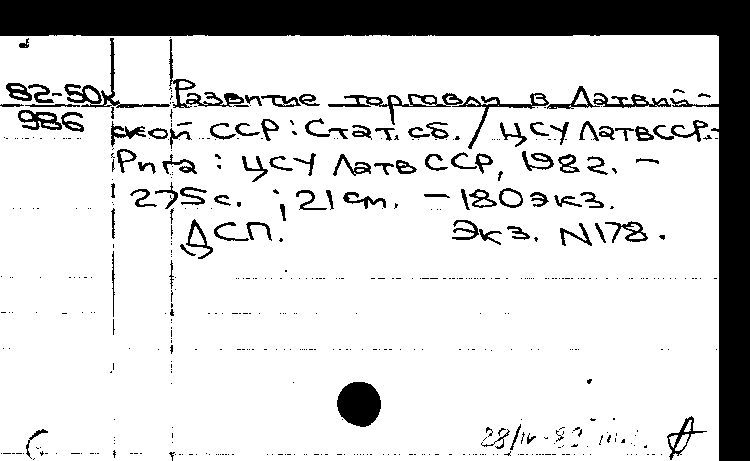 82-50к Развитие торговли в Латвий-
986 ской ССР : Стат. сб. / ЦСУ ЛатвССР.-
Рига : ЦСУ Латв ССР, 1982. -
275с. ; 21 см. - 180экз.
ДСП. Экз. N178.
28/IV-83